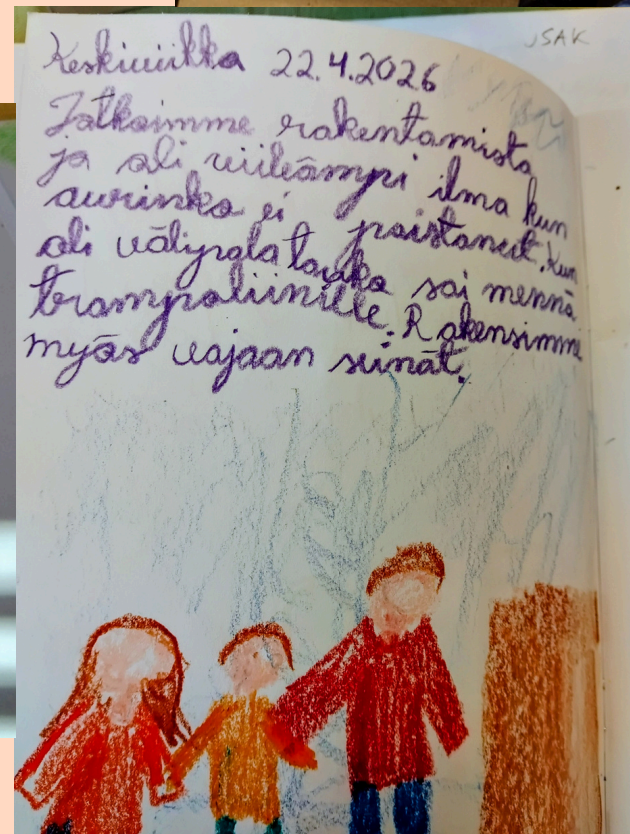 JSAK
Keskiviikko 22.4.2026
Jatkoimme rakentamista
ja oli viileämpi ilma kun
aurinko ei paistanut. Kun
oli välipalatauko sai mennä
trampoliinille. Rakensimme
myös vajaan seinät.